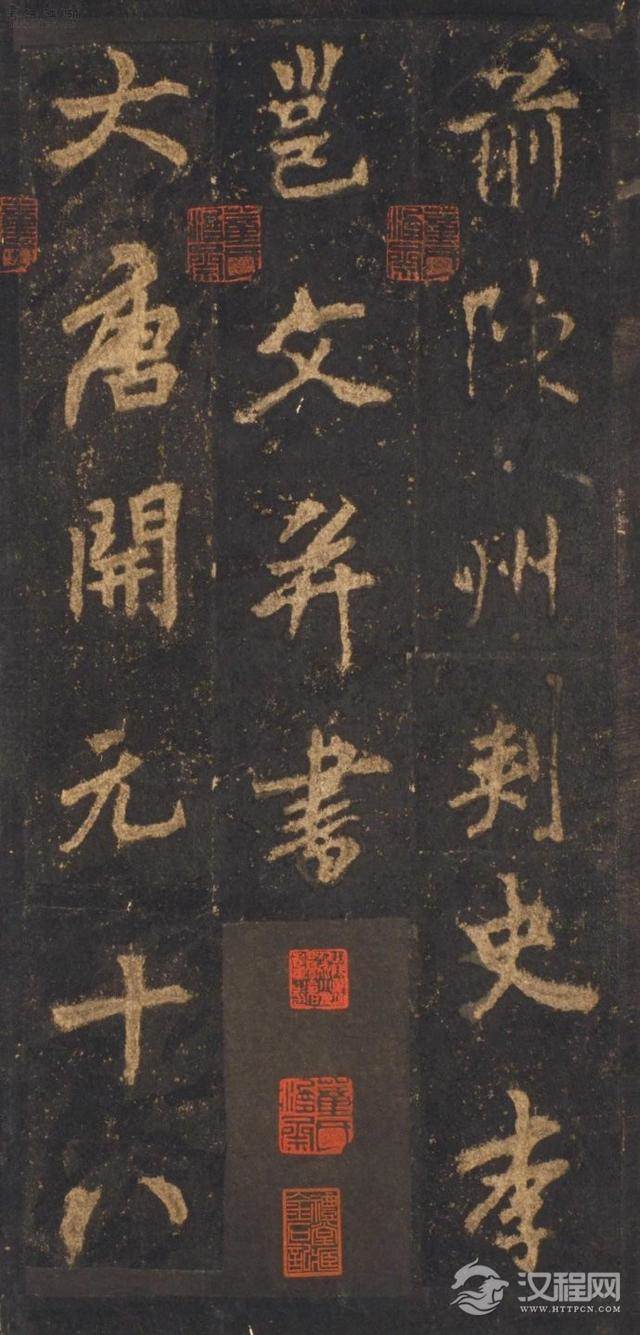 前陳州刺史李
邕文并書
大唐開元十八
漢程网
WWW.HTTPCN.COM